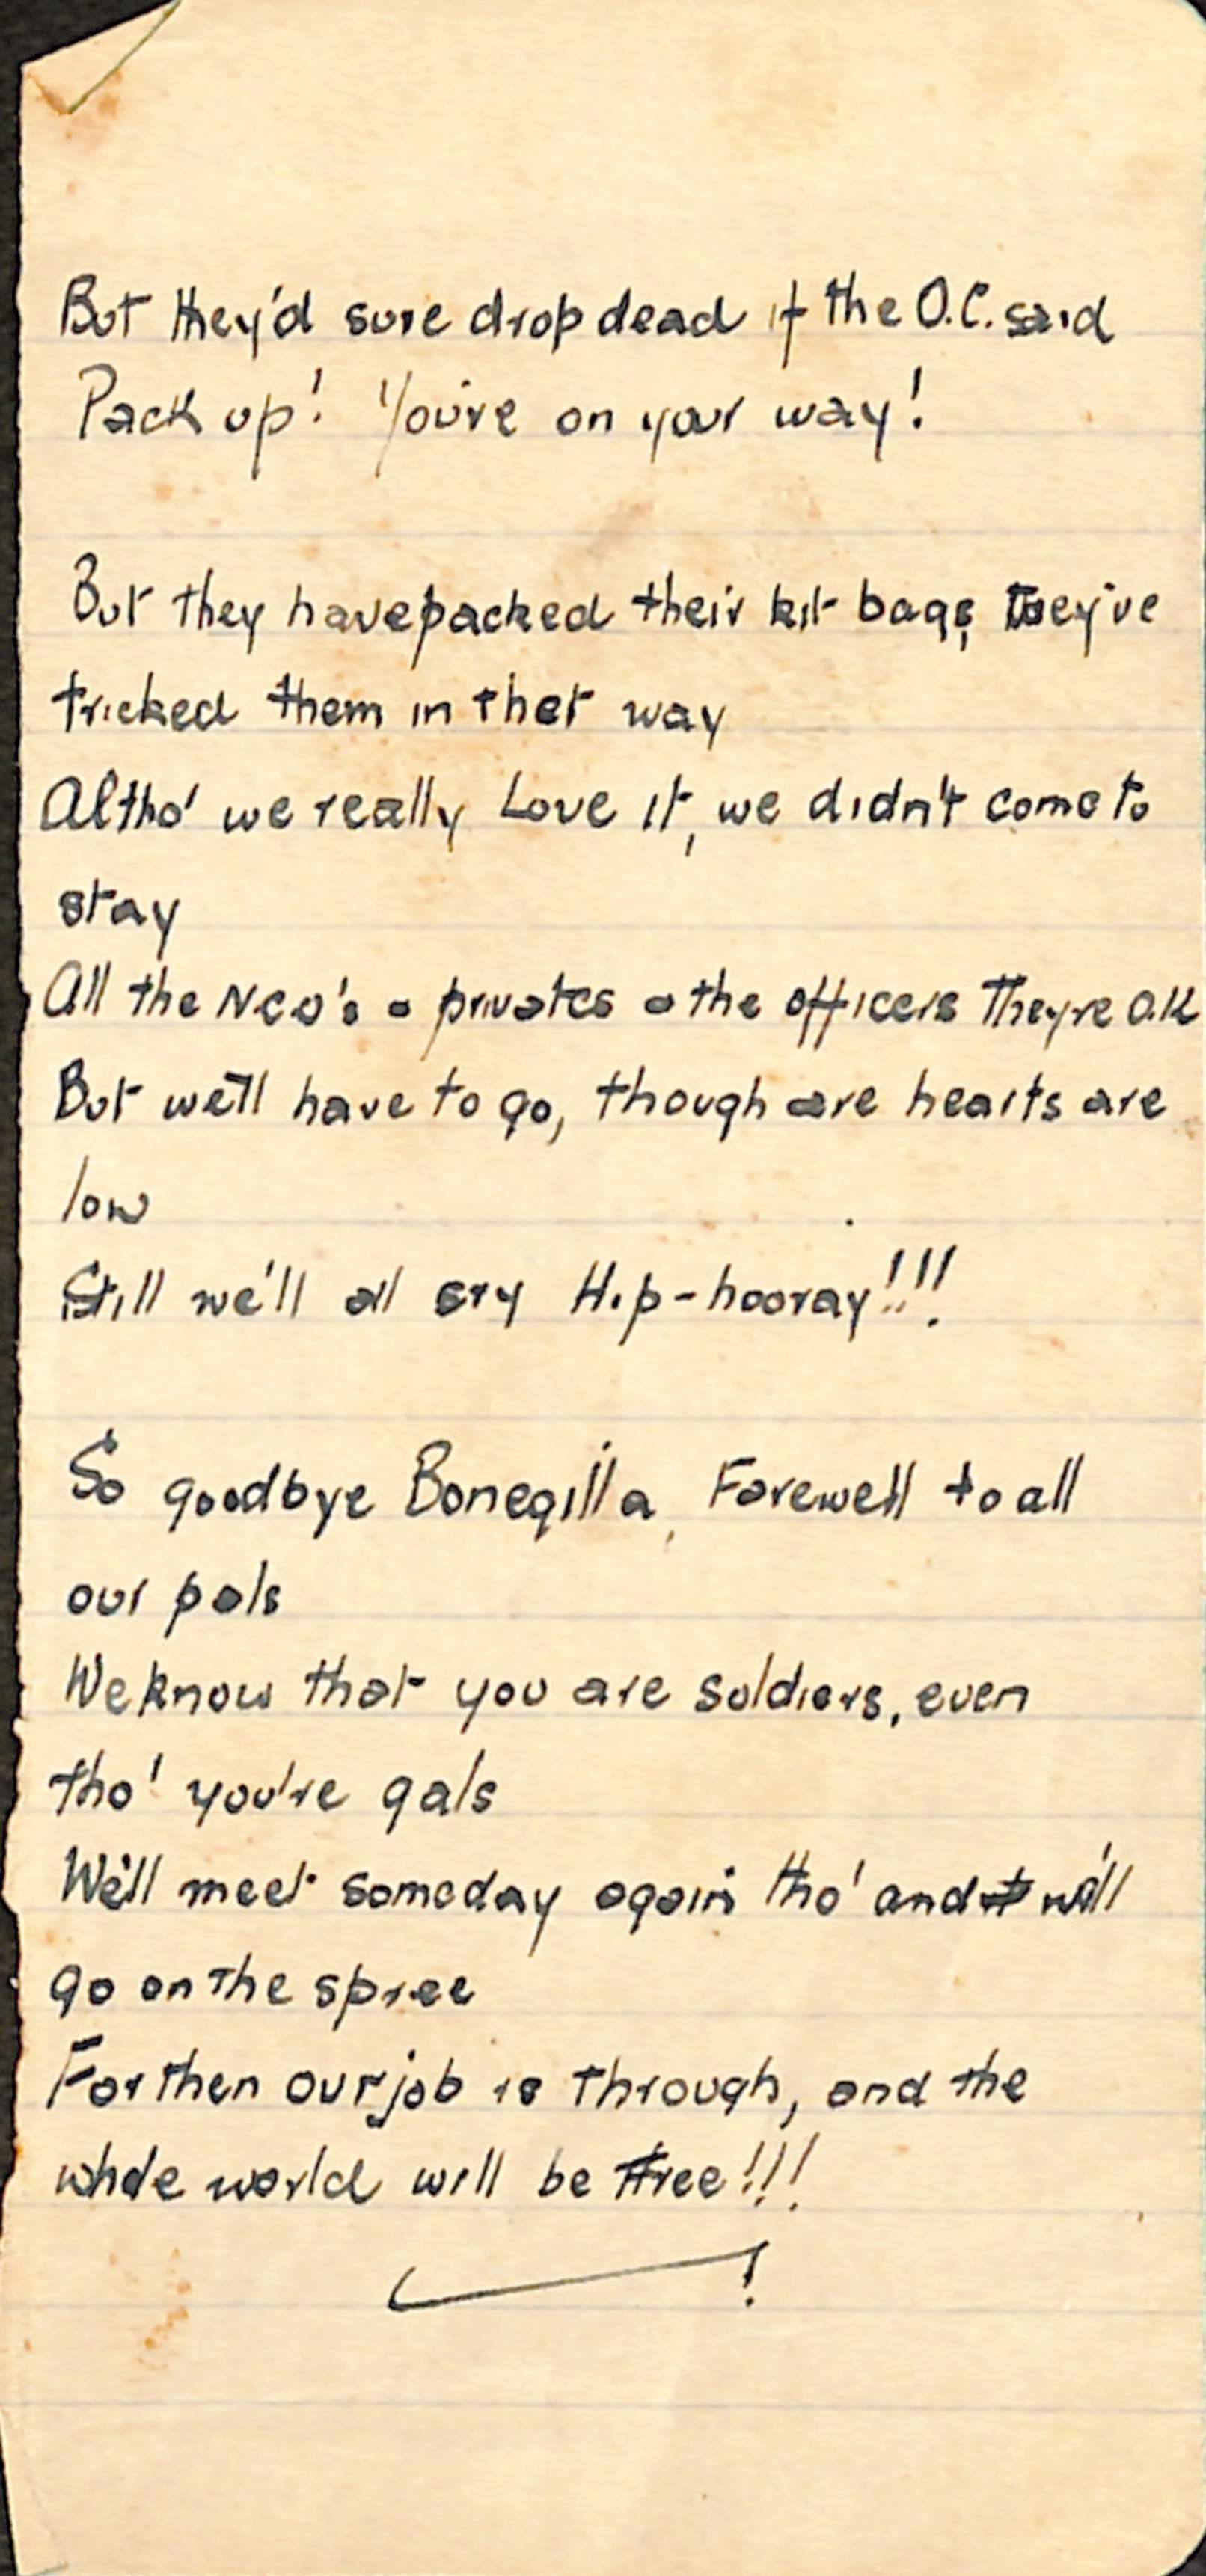 But they'd sure drop dead if the O.C. said
Pack up! You're on your way!
But they have packed their kit bags, they've
tricked them in thet way
Altho' we really Love it, we didn't come to
stay
All the NCO's - privates - the officers They're O.K
But we'll have to go, though are hearts are
low
Still we'll all cry Hip-hooray!!!
So goodbye Bonegilla, Farewell to all
our pals
We know that you are soldiers, even
tho' you're gals
We'll meet someday again tho' and we'll
go on the spree
For then our job is through, and the
whole world will be free!!!